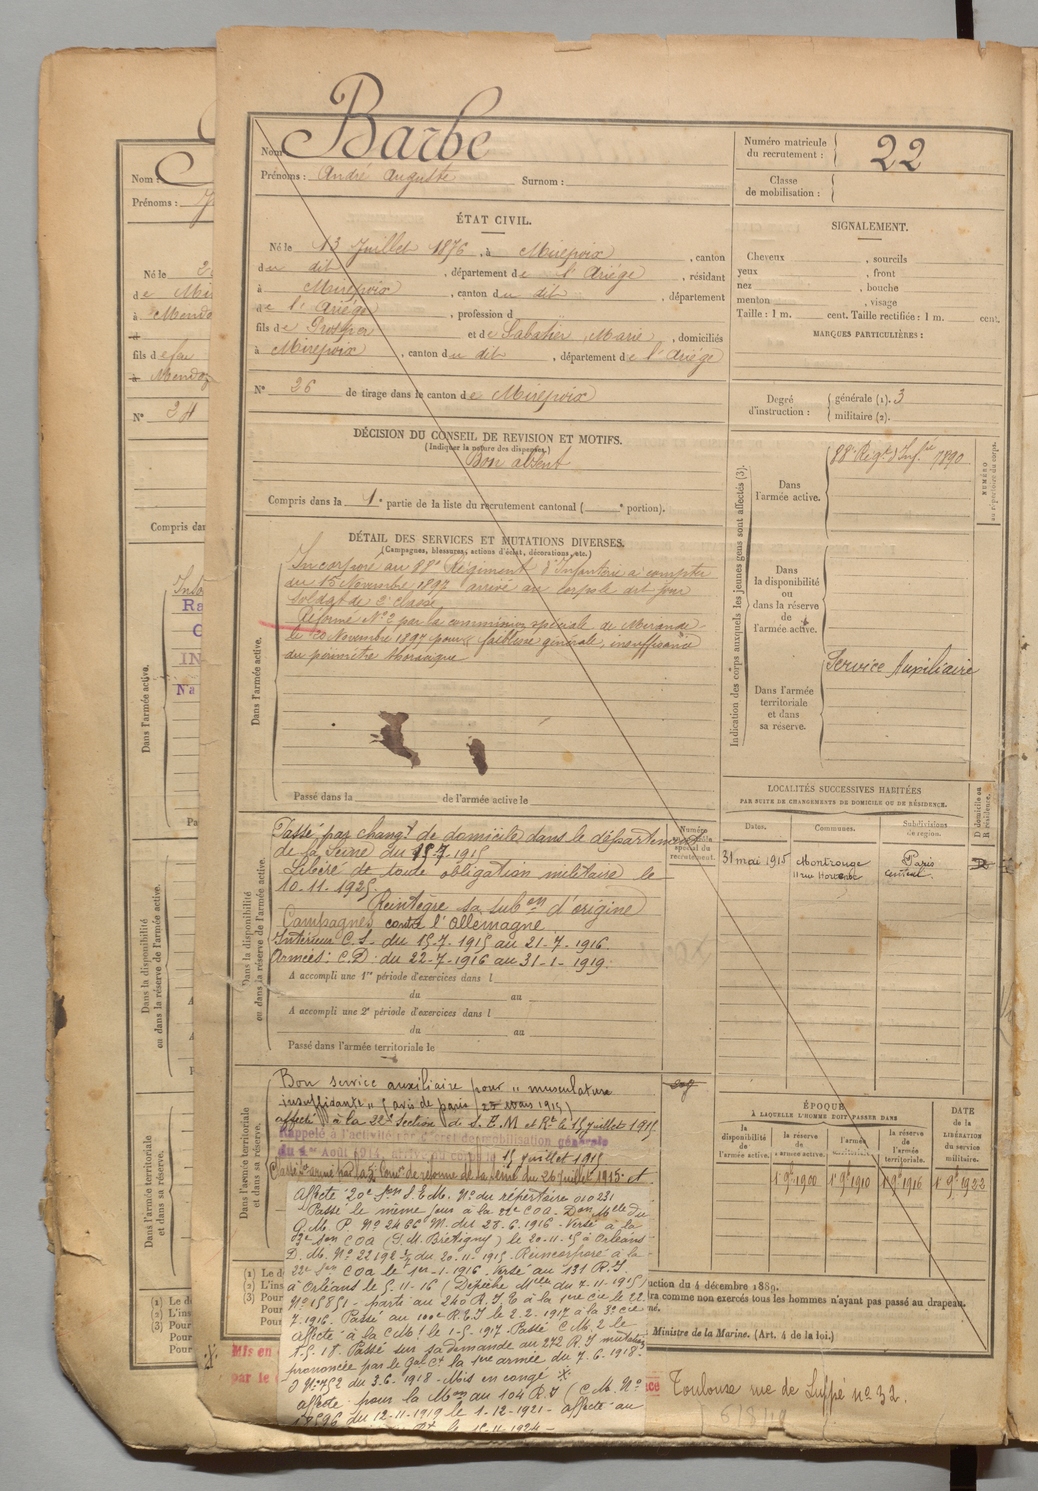 Barbe
Nom
Prénoms : André Auguste Surnom :
Numéro matricule du recrutement : 22
Classe de mobilisation :
ÉTAT CIVIL.
Né le 13 Juillet 1876, à Mirepoix, canton
du dit, département de l'Ariége, résidant
à Mirepoix, canton du dit, département
de l'Ariége, profession d
fils de Prosper et de Sabatier Marie, domiciliés
à Mirepoix, canton du dit, département de l'Ariége
N° 26 de tirage dans le canton de Mirepoix
SIGNALEMENT.
Cheveux , sourcils
yeux , front
nez , bouche
menton , visage
Taille : 1 m. cent. Taille rectifiée : 1 m. cent.
MARQUES PARTICULIÈRES :
Degré d'instruction : générale (1). 3
militaire (2).
DÉCISION DU CONSEIL DE REVISION ET MOTIFS.
(Indiquer la nature des dispenses.)
Bon absent
Compris dans la 1e partie de la liste du recrutement cantonal ( e portion).
DÉTAIL DES SERVICES ET MUTATIONS DIVERSES.
(Campagnes, blessures, actions d'éclat, décorations, etc.)
Dans l'armée active.
Incorporé au 88e Régiment d'Infanterie à compter
du 15 Novembre 1897 arrivé au corps le dit jour
soldat de 2e classe
Réformé N°2 par la commission spéciale de Mirande
le 20 Novembre 1897 pour faiblesse générale, insuffisance
du périmètre thoracique
Passé dans la de l'armée active le
Indication des corps auxquels les jeunes gens sont affectés (3).
NUMÉRO au répertoire du corps.
Dans l'armée active.
88e Régt d'Infie 7890
Dans la disponibilité ou dans la réserve de l'armée active.
Dans l'armée territoriale et dans sa réserve.
Service Auxiliaire
LOCALITÉS SUCCESSIVES HABITÉES
PAR SUITE DE CHANGEMENTS DE DOMICILE OU DE RÉSIDENCE.
Dates. Communes. Subdivisions de région. D domicile ou R résidence.
31 mai 1915 Montrouge Paris D
11 rue Hortense central
Dans la disponibilité ou dans la réserve de l'armée active.
Numéro spécial du recrutement.
Passé par changt de domicile dans le département
de la Seine du 15.7.1915
Libéré de toute obligation militaire le
10.11.1925
Réintègre sa subon d'origine
Campagnes contre l'Allemagne
Intérieur C.S. du 15-7-1915 au 21-7-1916
Armées : C.D. du 22-7-1916 au 31-1-1919
A accompli une 1re période d'exercices dans l
du au
A accompli une 2e période d'exercices dans l
du au
Passé dans l'armée territoriale le
Dans l'armée territoriale et dans sa réserve.
Bon service auxiliaire pour " musculature
insuffisante " (avis de paris (25 mars 1915)
affecté à la 22e Section de S.E.M et Rt le 15 juillet 1915
Rappelé à l'activité par décret de mobilisation générale
du 1er Août 1914, arrivé au corps le 15 juillet 1915
Classé sce armé par la 3e Comon de réforme de la Seine du 26 juillet 1915
ÉPOQUE
À LAQUELLE L'HOMME DOIT PASSER DANS
la disponibilité de l'armée active. la réserve de l'armée active. l'armée territoriale. la réserve de l'armée territoriale.
DATE de la LIBÉRATION du service militaire.
1er 9bre 1900 1er 9bre 1910 1er 9bre 1916 1er 9bre 1922
Affecté 20e Son S.E.M. N° du répertoire 010231
Passé le même jour à la 22e COA. Don Mlle du
G.M.P. N° 2466 M. du 28.6.1916. Versé à la
Son COA (S.M. Brétigny) le 20-11-15 à Orléans
D.M. N° 22192 du 20-11-1915. Réincorporé à la
22e Son COA le 1er-1-1916. Versé au 131 R.I.
à Orléans le 5-11-16 (Dépêche Mlle du 7-11-1915)
N° 15851 - parti au 240 R.I.T. à la 1ere Cie le 22
7.1916. Passé au 100e R.I.T le 2.2.1917 à la 3e Cie
affecté à la CM1 le 1-5-1917. Passé CM.2 le
1.5.18. Passé sur sa demande au 272 R.I mutation
prononcée par le Gal Ct la 1ere armée du 7.6.1918
N° 752 du 3.6.1918 - Mis en congé
affecté pour la Mon au 104 R.I (C.M. N°
du 12-11-1919 le 1-12-1921 - affecté au
le 15-11-1924 -
uction du 4 décembre 1889.
tra comme non exercés tous les hommes n'ayant pas passé au drapeau.
Ministre de la Marine. (Art. 4 de la loi.)
Mis en
par le
Toulouse rue de Luppé n° 32.
Nom :
Prénoms :
Né le
de Mi
à
fils de feu
à
N° 24
Compris da
Dans l'armée active.
Dans la disponibilité ou dans la réserve de l'armée active.
Dans l'armée territoriale et dans sa réserve.
(1) Le d
(2) L'ins
(3) Pour
Pour
Pour